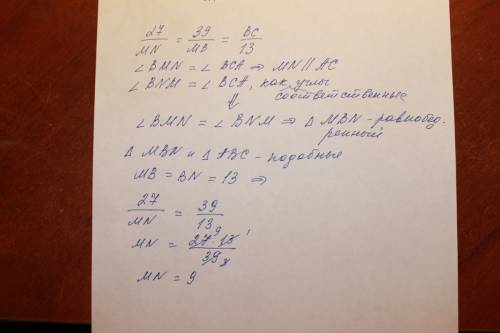 27/MN = 39/MB = BC/13
∠BMN = ∠BCA ⇒ MN || AC
∠BNM = ∠BCA, как углы
соответственные
⇓
∠BMN = ∠BNM ⇒ △ MBN - равнобед-
ренный
△ MBN и △ ABC - подобные
MB = BN = 13 ⇒
27/MN = 39/13
MN = 27 · 13 / 39
MN = 9